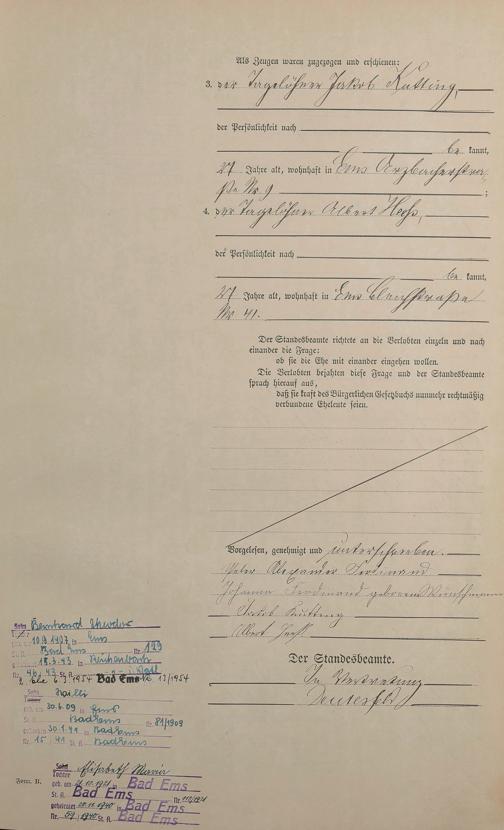 Als Zeugen waren zugezogen und erschienen:
3. der Tagelöhner Jakob Kutting,
der Persönlichkeit nach
be kannt,
27 Jahre alt, wohnhaft in Ems Arzbacherstra-
ße Nr 9 ;
4. der Tagelöhner Albert
der Persönlichkeit nach
be kannt,
27 Jahre alt, wohnhaft in Ems Bleichstraße
Nr. 41.
Der Standesbeamte richtete an die Verlobten einzeln und nach
einander die Frage:
ob sie die Ehe mit einander eingehen wollen.
Die Verlobten bejahten diese Frage und der Standesbeamte
sprach hierauf aus,
daß sie kraft des Bürgerlichen Gesetzbuchs nunmehr rechtmäßig
verbundene Eheleute seien.
Vorgelesen, genehmigt und unterschrieben.
Peter Alexander Ferdinand
Johanna Ferdinand geborene
Jakob Kutting
Albert
Der Standesbeamte.
In Vertretung
Sohn Bernhard
10.9.1907 in Ems
Bad Ems Nr. 129
18.3.43
Nr. 46/43
2. Ehe 6.3.1954 Bad Ems Nr. 13/1954
30.6.09 Ems
St. A. Bad Ems Nr. 81/1909
30.1.41 Bad Ems
Nr. 15/41 St. A. Bad Ems
Tochter Elisabeth Maria
geb. am in Bad Ems
St. A. Bad Ems Nr.
geheiratet in Bad Ems
Nr. St. A. Bad Ems
Form. B.